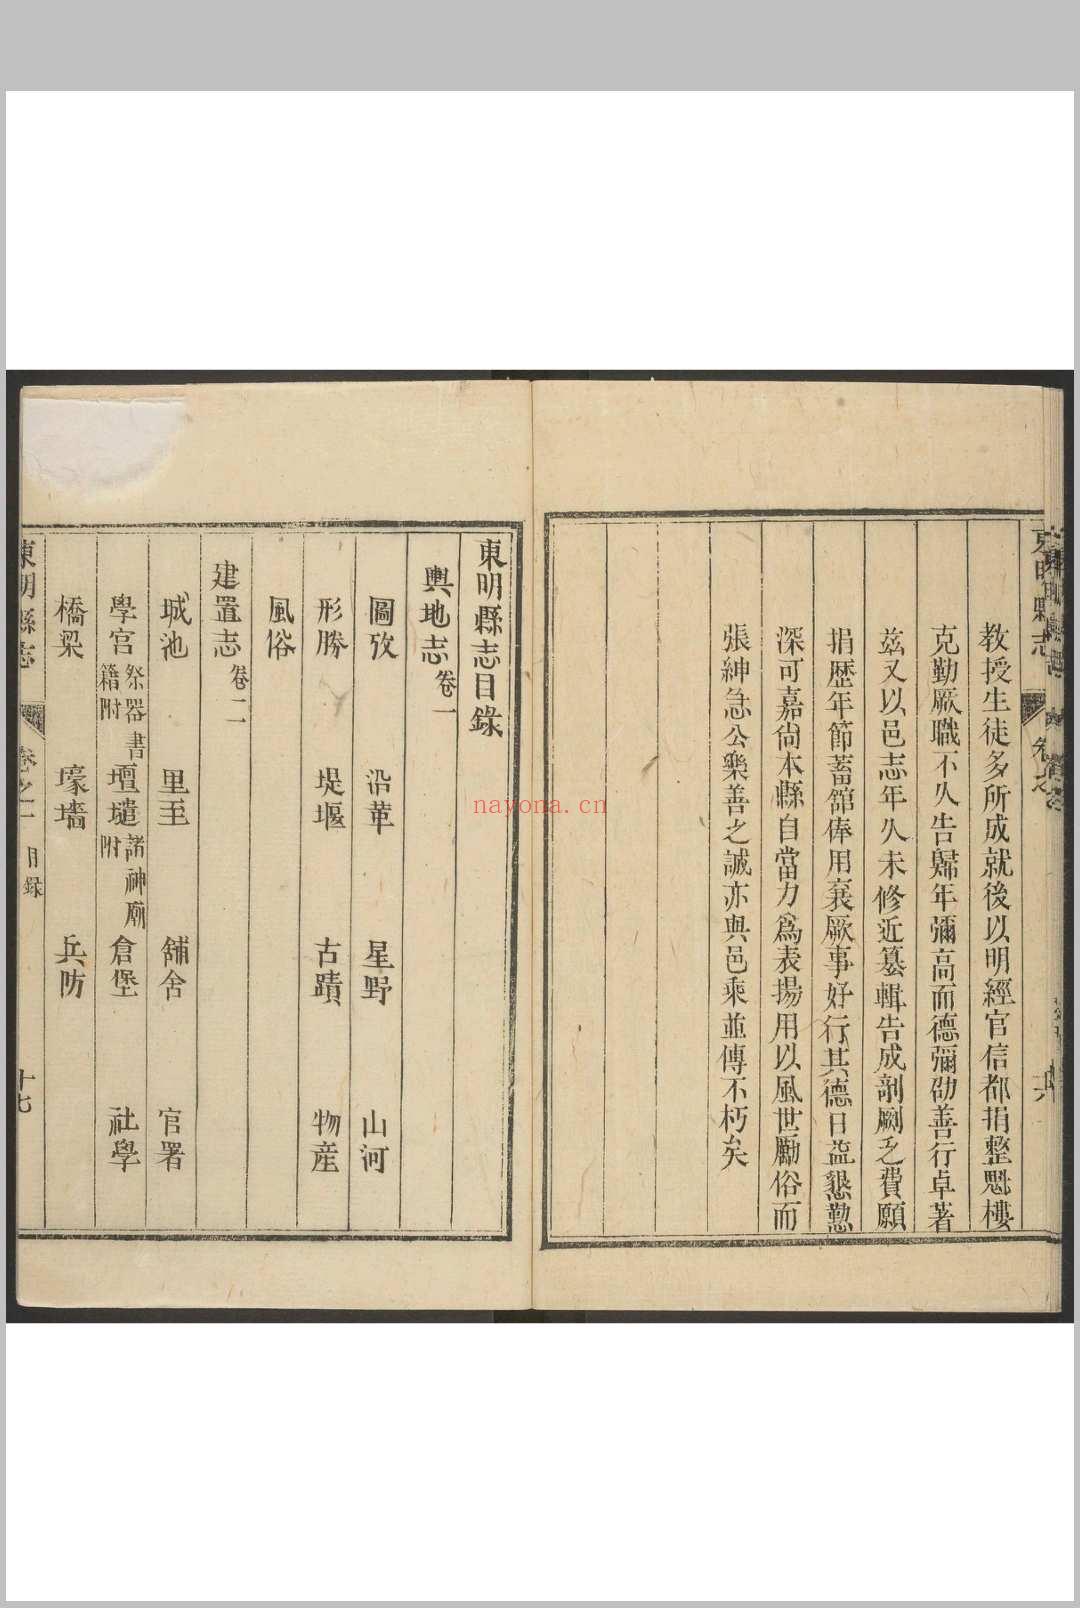 教授生徒多所成就後以明經官信都捐整魁樓
克勤厥職不久告歸年彌高而德彌劭善行卓著
茲又以邑志年久未修近纂輯告成剞劂乏費願
捐歷年節蓄舘俸用襄厥事好行其德日益懇懃
深可嘉尙本縣自當力爲表揚用以風世勵俗而
張紳急公樂善之誠亦與邑乘並傳不朽矣
東明縣志目錄
輿地志 卷一
圖攷 沿革 星野 山河
形勝 堤堰 古蹟 物産
風俗
建置志 卷二
城池 里至 舖舍 官署
學宮 祭器書籍附 壇壝 諸神廟附 倉堡 社學
橋梁 壕墻 兵防
東明縣志 卷之一 目錄 十七
nayona.cn